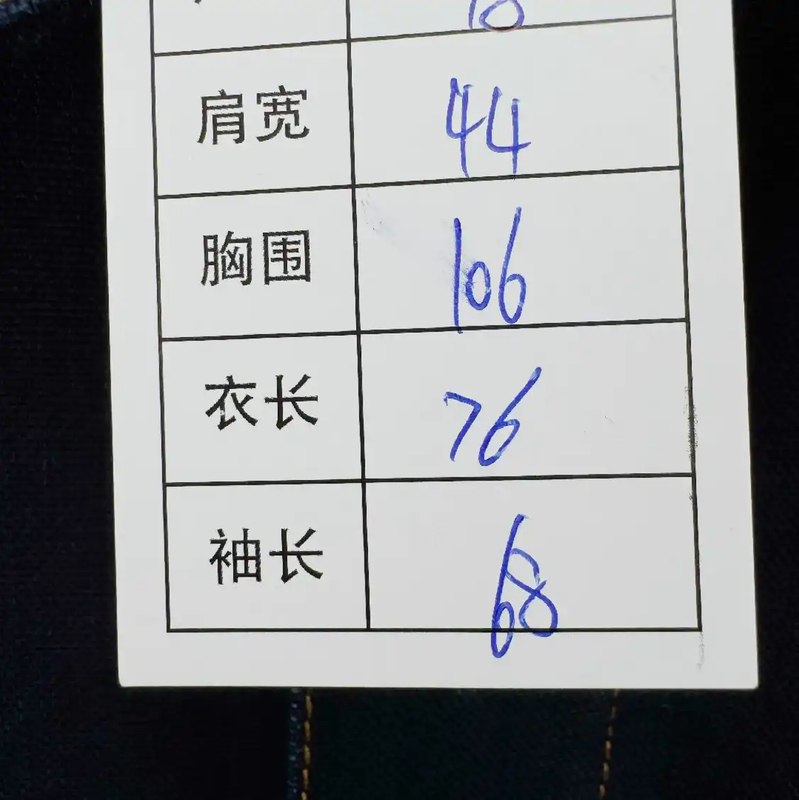 肩宽 44
胸围 106
衣长 76
袖长 68